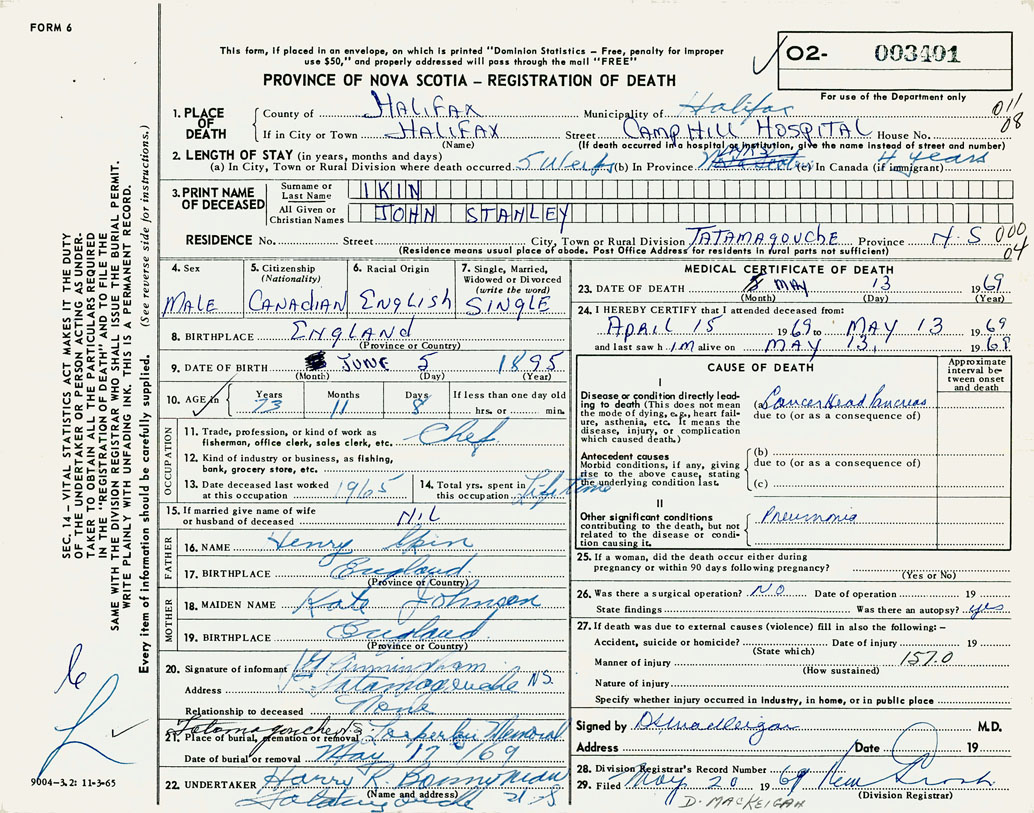 FORM 6
This form, if placed in an envelope, on which is printed "Dominion Statistics – Free, penalty for improper
use $50," and properly addressed will pass through the mail "FREE"
PROVINCE OF NOVA SCOTIA – REGISTRATION OF DEATH
02- 003401
For use of the Department only
011
08
1. PLACE OF DEATH
County of HALIFAX Municipality of Halifax
If in City or Town HALIFAX Street CAMP HILL HOSPITAL House No.
(Name) (If death occurred in a hospital or institution, give the name instead of street and number)
2. LENGTH OF STAY (in years, months and days)
(a) In City, Town or Rural Division where death occurred 5 Weeks (b) In Province (c) In Canada (if immigrant) 4 years
3. PRINT NAME OF DECEASED
Surname or Last Name IKIN
All Given or Christian Names JOHN STANLEY
RESIDENCE No. Street City, Town or Rural Division TATAMAGOUCHE Province N.S 000
(Residence means usual place of abode. Post Office Address for residents in rural parts not sufficient) 04
4. Sex MALE
5. Citizenship (Nationality) CANADIAN
6. Racial Origin ENGLISH
7. Single, Married, Widowed or Divorced (write the word) SINGLE
8. BIRTHPLACE ENGLAND
(Province or Country)
9. DATE OF BIRTH JUNE 5 1895
(Month) (Day) (Year)
10. AGE IN Years 73 Months 11 Days 8 If less than one day old hrs. or min.
OCCUPATION
11. Trade, profession, or kind of work as fisherman, office clerk, sales clerk, etc. Chef
12. Kind of industry or business, as fishing, bank, grocery store, etc.
13. Date deceased last worked at this occupation 1965
14. Total yrs. spent in this occupation Lifetime
15. If married give name of wife or husband of deceased NIL
FATHER
16. NAME Henry Ikin
17. BIRTHPLACE England
(Province or Country)
MOTHER
18. MAIDEN NAME Kate Johnson
19. BIRTHPLACE England
(Province or Country)
20. Signature of informant
Address Tatamagouche N.S.
Relationship to deceased None
Tatamagouche N.S
21. Place of burial, cremation or removal Memorial
Date of burial or removal May 17 /69
22. UNDERTAKER Harry R. Bonnyman
(Name and address)
Tatamagouche N.S
MEDICAL CERTIFICATE OF DEATH
23. DATE OF DEATH MAY 13 1969
(Month) (Day) (Year)
24. I HEREBY CERTIFY that I attended deceased from:
APRIL 15 1969 to MAY 13 1969
and last saw him alive on MAY 13, 1969
CAUSE OF DEATH
Approximate interval between onset and death
I
Disease or condition directly leading to death (This does not mean the mode of dying, e.g., heart failure, asthenia, etc. It means the disease, injury, or complication which caused death.)
(a) Cancer Head Pancreas
due to (or as a consequence of)
Antecedent causes
Morbid conditions, if any, giving rise to the above cause, stating the underlying condition last.
(b)
due to (or as a consequence of)
(c)
II
Other significant conditions
contributing to the death, but not related to the disease or condition causing it.
Pneumonia
25. If a woman, did the death occur either during pregnancy or within 90 days following pregnancy?
(Yes or No)
26. Was there a surgical operation? NO Date of operation 19
State findings Was there an autopsy? yes
27. If death was due to external causes (violence) fill in also the following: –
Accident, suicide or homicide? Date of injury 19
(State which)
Manner of injury 157.0
(How sustained)
Nature of injury
Specify whether injury occurred in industry, in home, or in public place
Signed by M.D.
Address Date 19
28. Division Registrar's Record Number
29. Filed May 20 1969
(Division Registrar)
D. MACKEIGAN
SEC. 14 – VITAL STATISTICS ACT MAKES IT THE DUTY
OF THE UNDERTAKER OR PERSON ACTING AS UNDER-
TAKER TO OBTAIN ALL THE PARTICULARS REQUIRED
IN THE "REGISTRATION OF DEATH" AND TO FILE THE
SAME WITH THE DIVISION REGISTRAR WHO SHALL ISSUE THE BURIAL PERMIT.
WRITE PLAINLY WITH UNFADING INK. THIS IS A PERMANENT RECORD.
Every item of information should be carefully supplied. (See reverse side for instructions.)
9004-3.2: 11-3-65